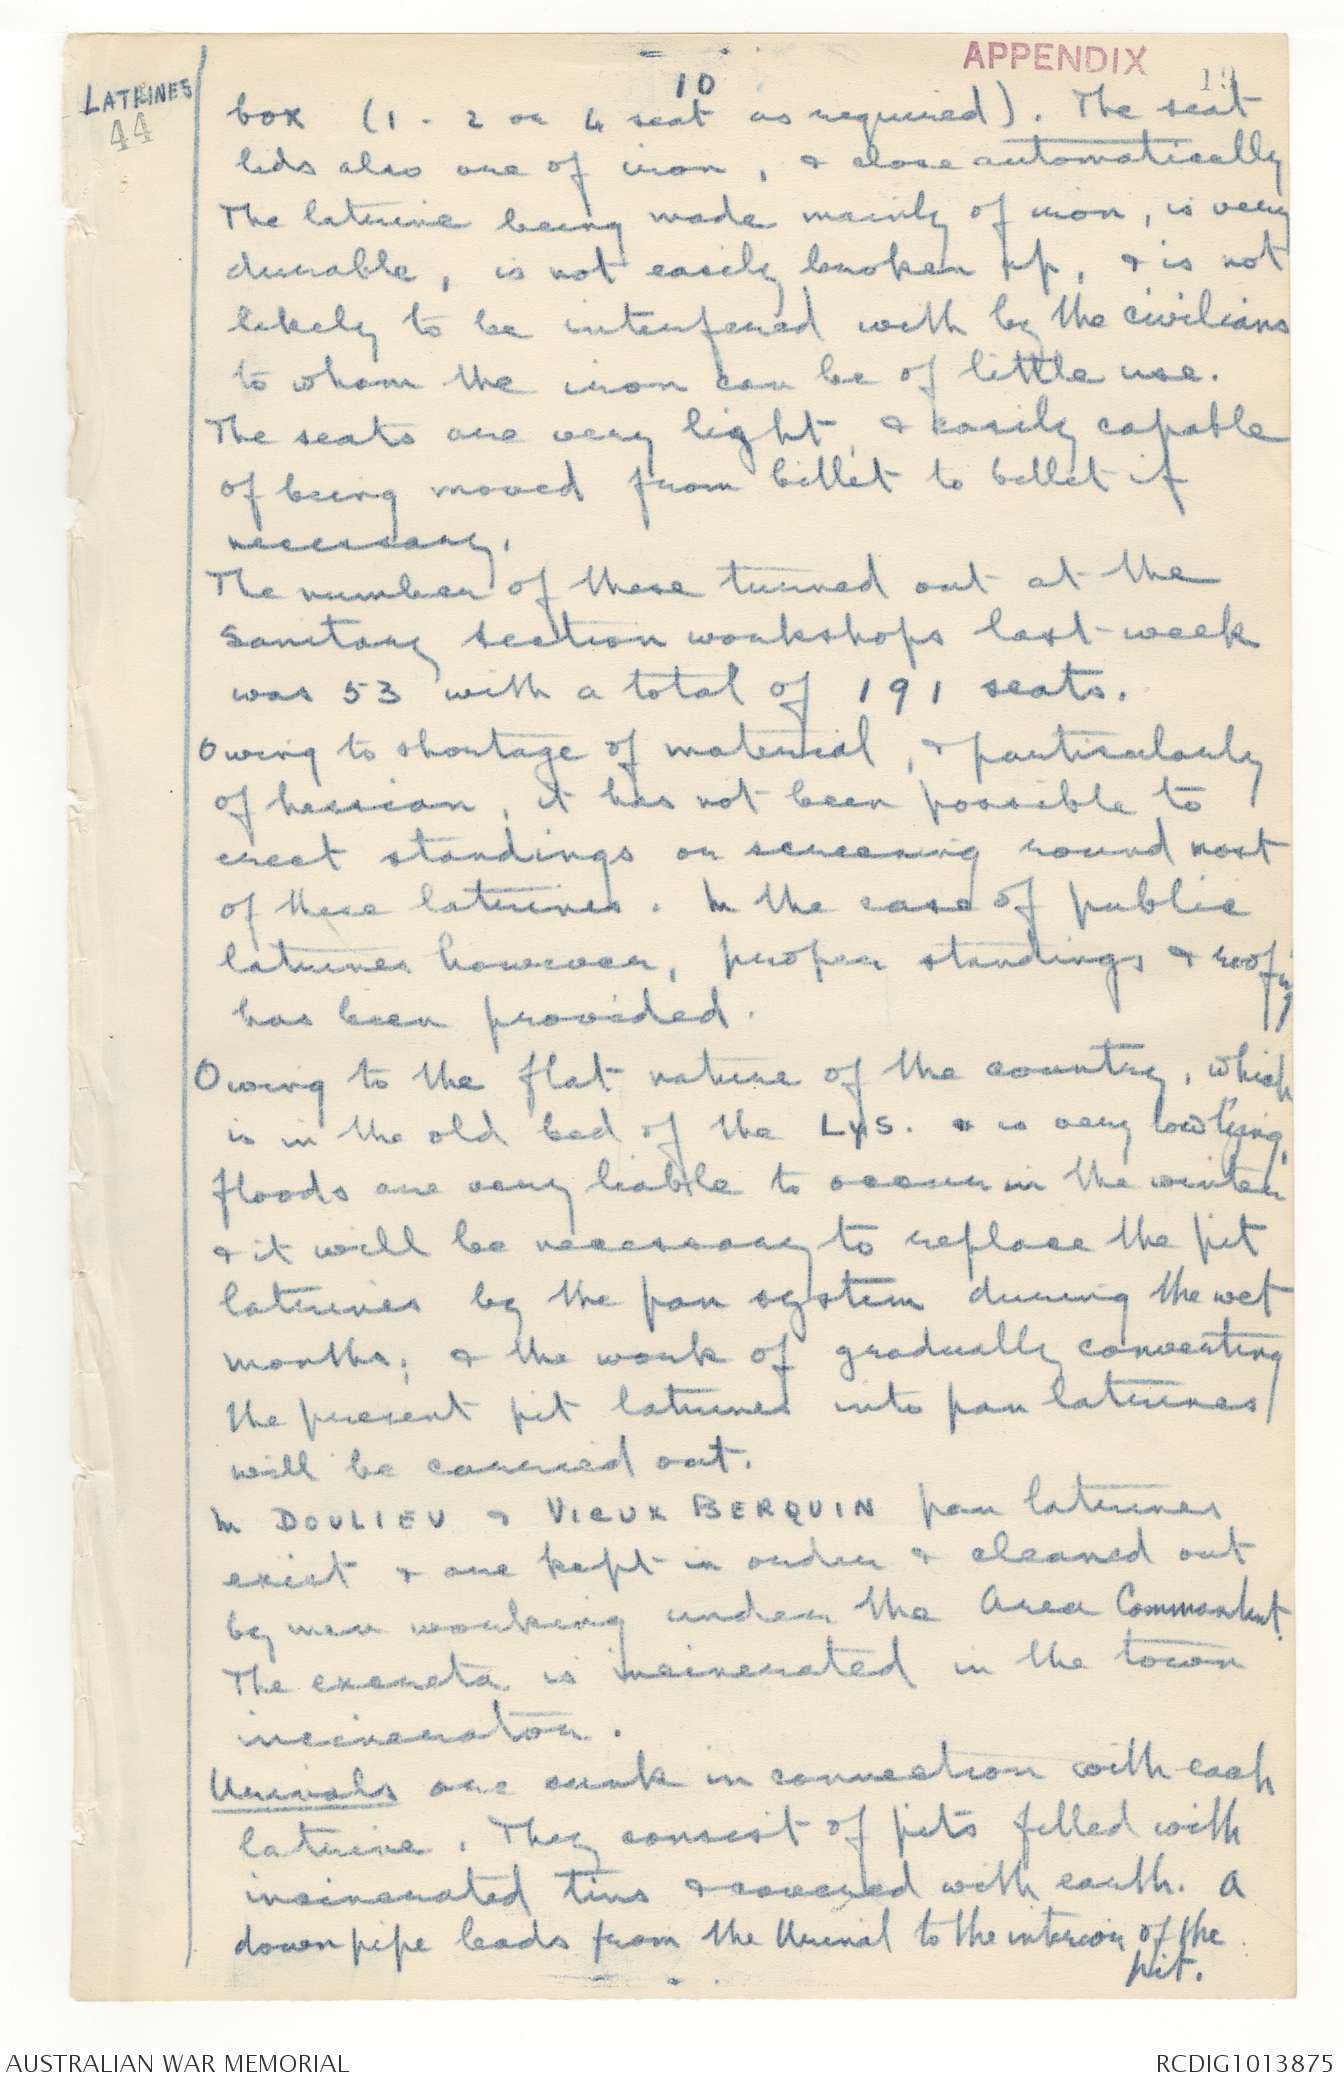 APPENDIX
10
LATRINES
44
box (1 - 2 or 4 seat as required). The seat
lids also are of iron, & close automatically
The latrine being made mainly of iron, is very
durable, is not easily broken up, & is not
likely to be interfered with by the civilians
to whom the iron can be of little use.
The seats are very light, & easily capable
of being moved from billet to billet if
necessary.
The number of these turned out at the
Sanitary section workshops last week
was 53 with a total of 191 seats.
Owing to shortage of material, & particularly
of hessian, it has not been possible to
erect standings or screening round most
of these latrines. In the case of public
latrines however, proper standings & roofing
has been provided.
Owing to the flat nature of the country, which
is in the old bed of the LYS. & is very low lying,
floods are very liable to occur in the winter
& it will be necessary to replace the pit
latrines by the pan system during the wet
months; & the work of gradually converting
the present pit latrines into pan latrines
will be carried out.
In DOULIEU & VIEUX BERQUIN pan latrines
exist & are kept in order & cleaned out
by men working under the Area Commandant.
The excreta is incinerated in the town
incinerator.
Urinals are sunk in connection with each
latrine. They consist of pits filled with
incinerated tins & covered with earth. A
down pipe leads from the Urinal to the interior of the
pit.
AUSTRALIAN WAR MEMORIAL
RCDIG1013875